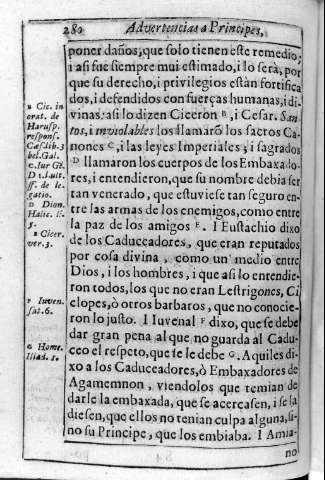 280 Advertencias a Principes,
poner daños, que solo tienen este remedio;
i asi fue siempre mui estimado, i lo será, por
que su derecho, i privilegios están fortifica
dos, i defendidos con fuerças humanas, i di-
vinas: asi lo dizen Ciceron B, i Cesar. San-
tos, i inviolables los llamarõ los sacros Ca-
nones C, i las leyes Imperiales; i sagrados
D llamaron los cuerpos de los Embaxado-
res, i entendieron, que su nombre debia ser
tan venerado, que estuviese tan seguro en-
tre las armas de los enemigos, como entre
la paz de los amigos E. I Eustachio dixo
de los Caduceadores, que eran reputados
por cosa divina, como un medio entre
Dios, i los hombres, i que asi lo entendie-
ron todos, los que no eran Lestrigones, Ci
clopes, ò otros barbaros, que no conocie-
ron lo justo. I Iuvenal F dixo, que se debe
dar gran pena al que no guarda al Cadu-
ceo el respeto, que se le debe G. Aquiles di-
xo a los Caduceadores, ò Embaxadores de
Agamemnon, viendolos que temian de
darle la embaxada, que se acercasen, i se la
diesen, que ellos no tenian culpa alguna, si-
no su Principe, que los embiaba. I Amia-
no
B Cic. in
orat. de
Harusp.
respons.
Cæs. lib. 3
bel. Gal.
c. Iur. Gẽ.
D l. ult.
ff. de le-
gatio.
D Dion.
Halic. li.
E Cicer.
ver. 3.
F Iuven.
sat. 6.
G Home.
Iliad. 1.